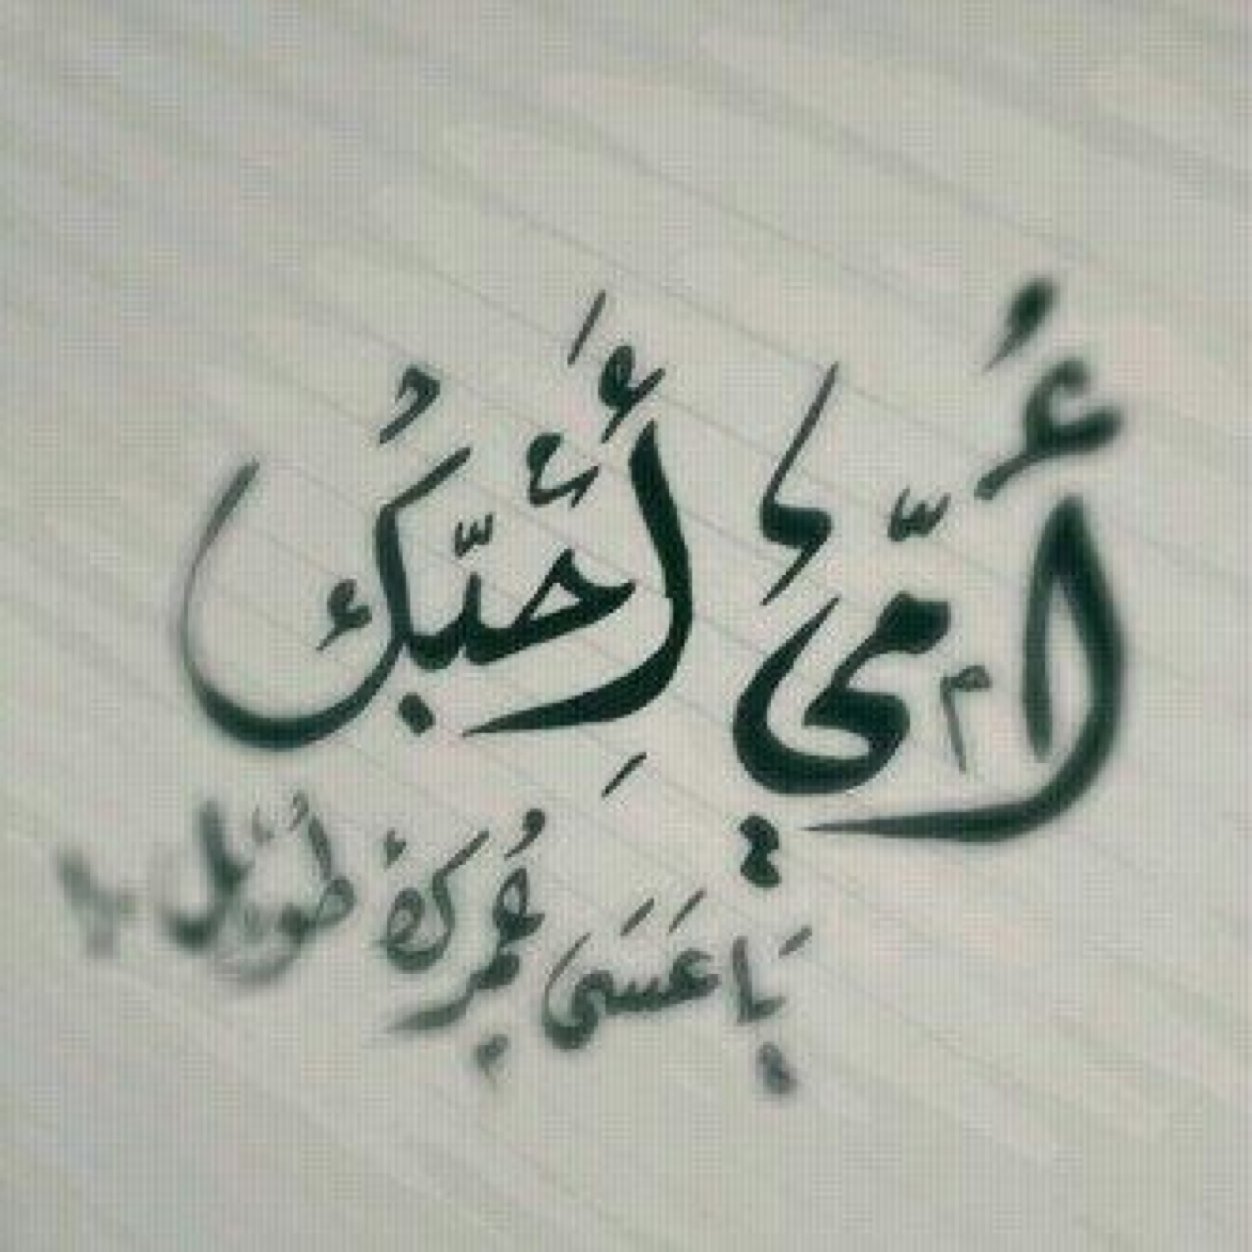 أُمّي أَحِبّكُ
يَا عَسَى عُمرك طُويل